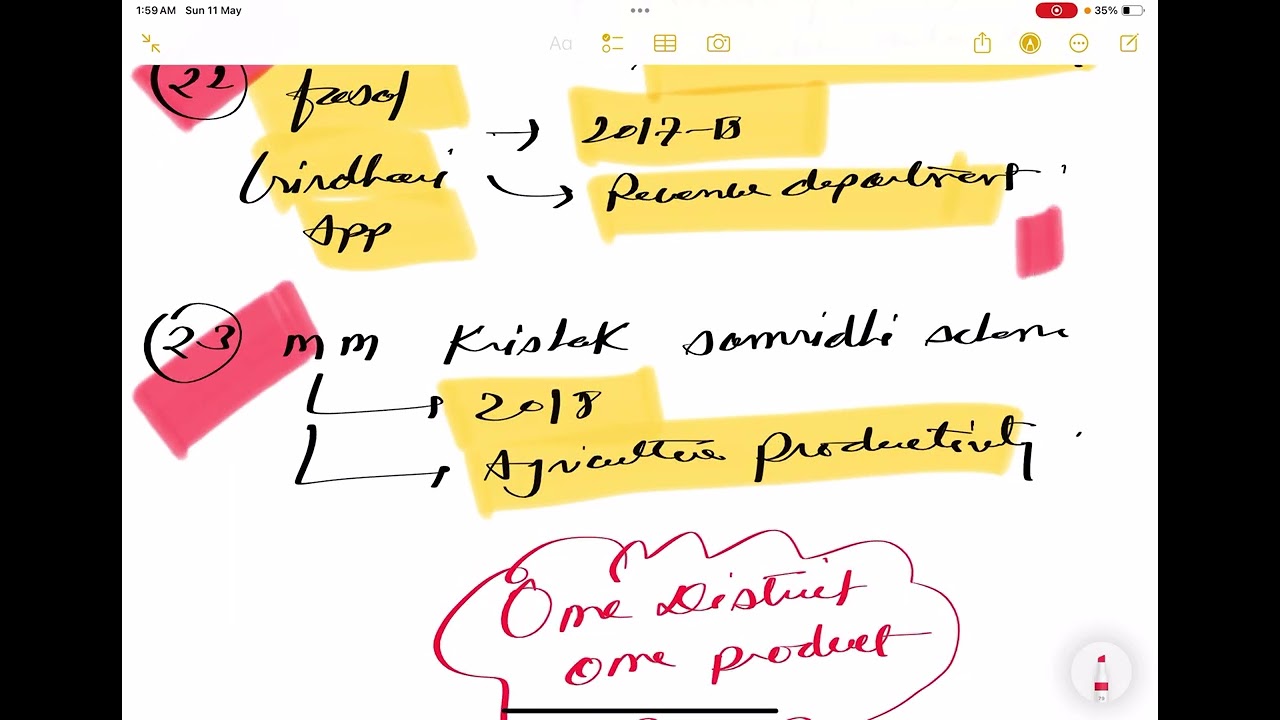 1:59 AM Sun 11 May
35%
Aa
(22) fasal
→ 2017-18
Girdhari → Revenue department
App
(23) mm Kristak samridhi scheme
2018
Agriculture Productivity
One District
one product